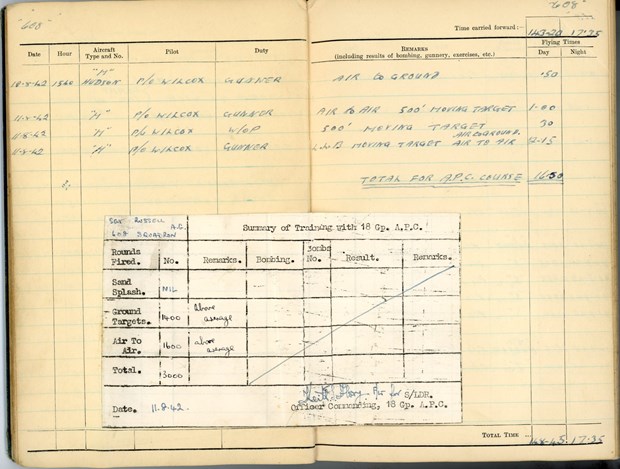 "608"
"608"
Time carried forward:— 143-20 17-35
Date Hour Aircraft Type and No. Pilot Duty REMARKS (including results of bombing, gunnery, exercises, etc.) Flying Times Day Night
"M"
10-8-42 HUDSON P/O WILCOX GUNNER AIR TO GROUND .50
11-8-42 "M" P/O WILCOX GUNNER AIR TO AIR 500' MOVING TARGET 1-00
11-8-42 "M" P/O WILCOX W/OP 500' MOVING TARGET AIR TO GROUND. 30
11-8-42 "M" P/O WILCOX GUNNER MOVING TARGET AIR TO AIR
TOTAL FOR A.P.C. COURSE 16-50
SGT RUSSELL A.G.
608 SQUADRON
Summary of Training with 18 Gp. A.P.C.
Rounds Fired. No. Remarks. Bombing. Bombs No. Result. Remarks.
Sand Splash. NIL
Ground Targets. 1400 above average
Air To Air. 1600 above average
Total. 3000
for S/LDR.
Date. 11.8.42. Officer Commanding, 18 Gp. A.P.C.
TOTAL TIME 148-45 17-35